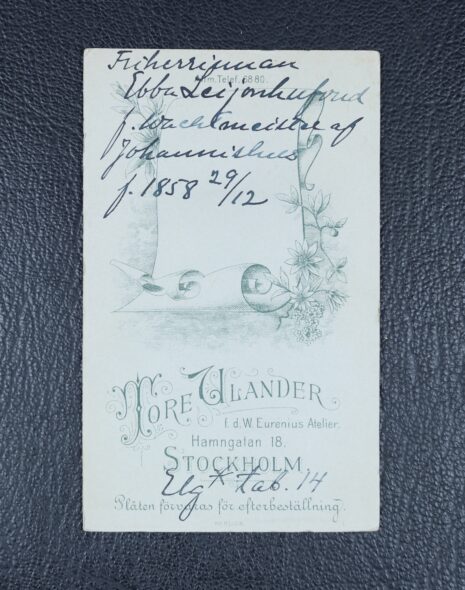 Friherrinnan
Alm.Telef. 5880.
Ebba Leijonhufvud
f. Wachtmeister af
Johannishus
f. 1858 29/12
TORE ULANDER
f. d. W. Eurenius Atelier.
Hamngatan 18.
STOCKHOLM
Elgk tab. 14
Plåten förvaras för efterbeställning.